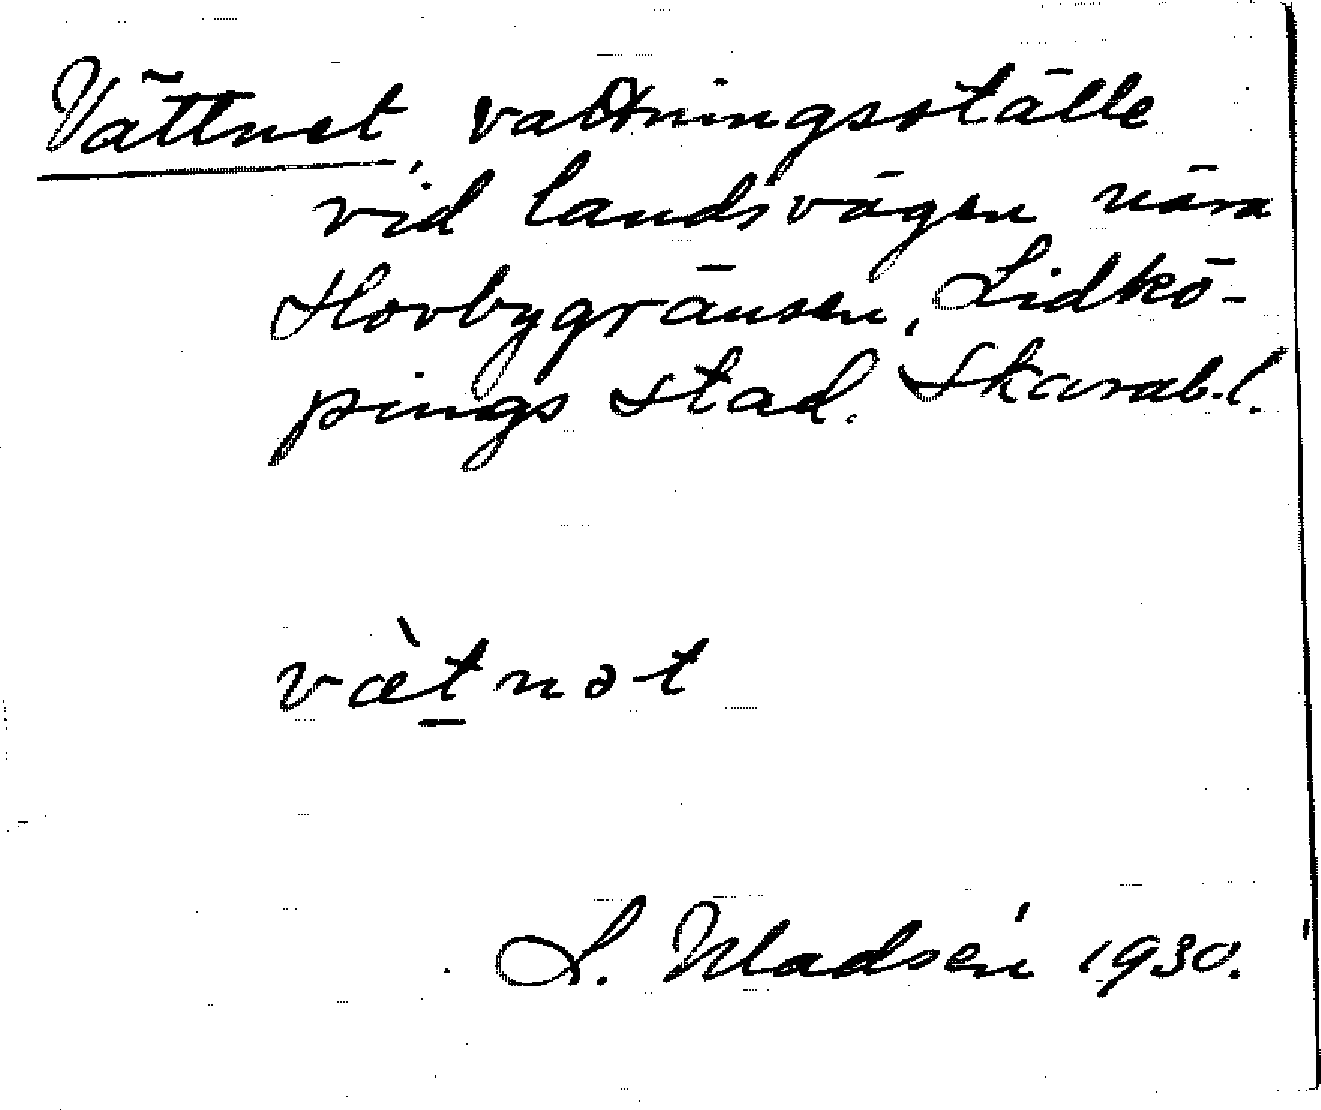 Vättnet, vattningsställe
vid landsvägen nära
Hovbygränsen, Lidkö-
pings stad. Skarab.l.
væ̀t̠nət
S. Madsén 1930.